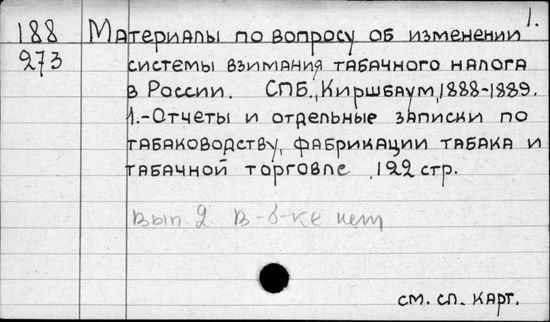 1.
188 Материалы по вопросу об изменении
273 системы взимания табачного налога
в России. СПБ., Киршбаум, 1888-1889.
1.-Отчеты и отдельные записки по
табаководству, фабрикации табака и
табачной торговле. 122 стр.
Вып. 2. в б-ке нет
см. сл. карт.